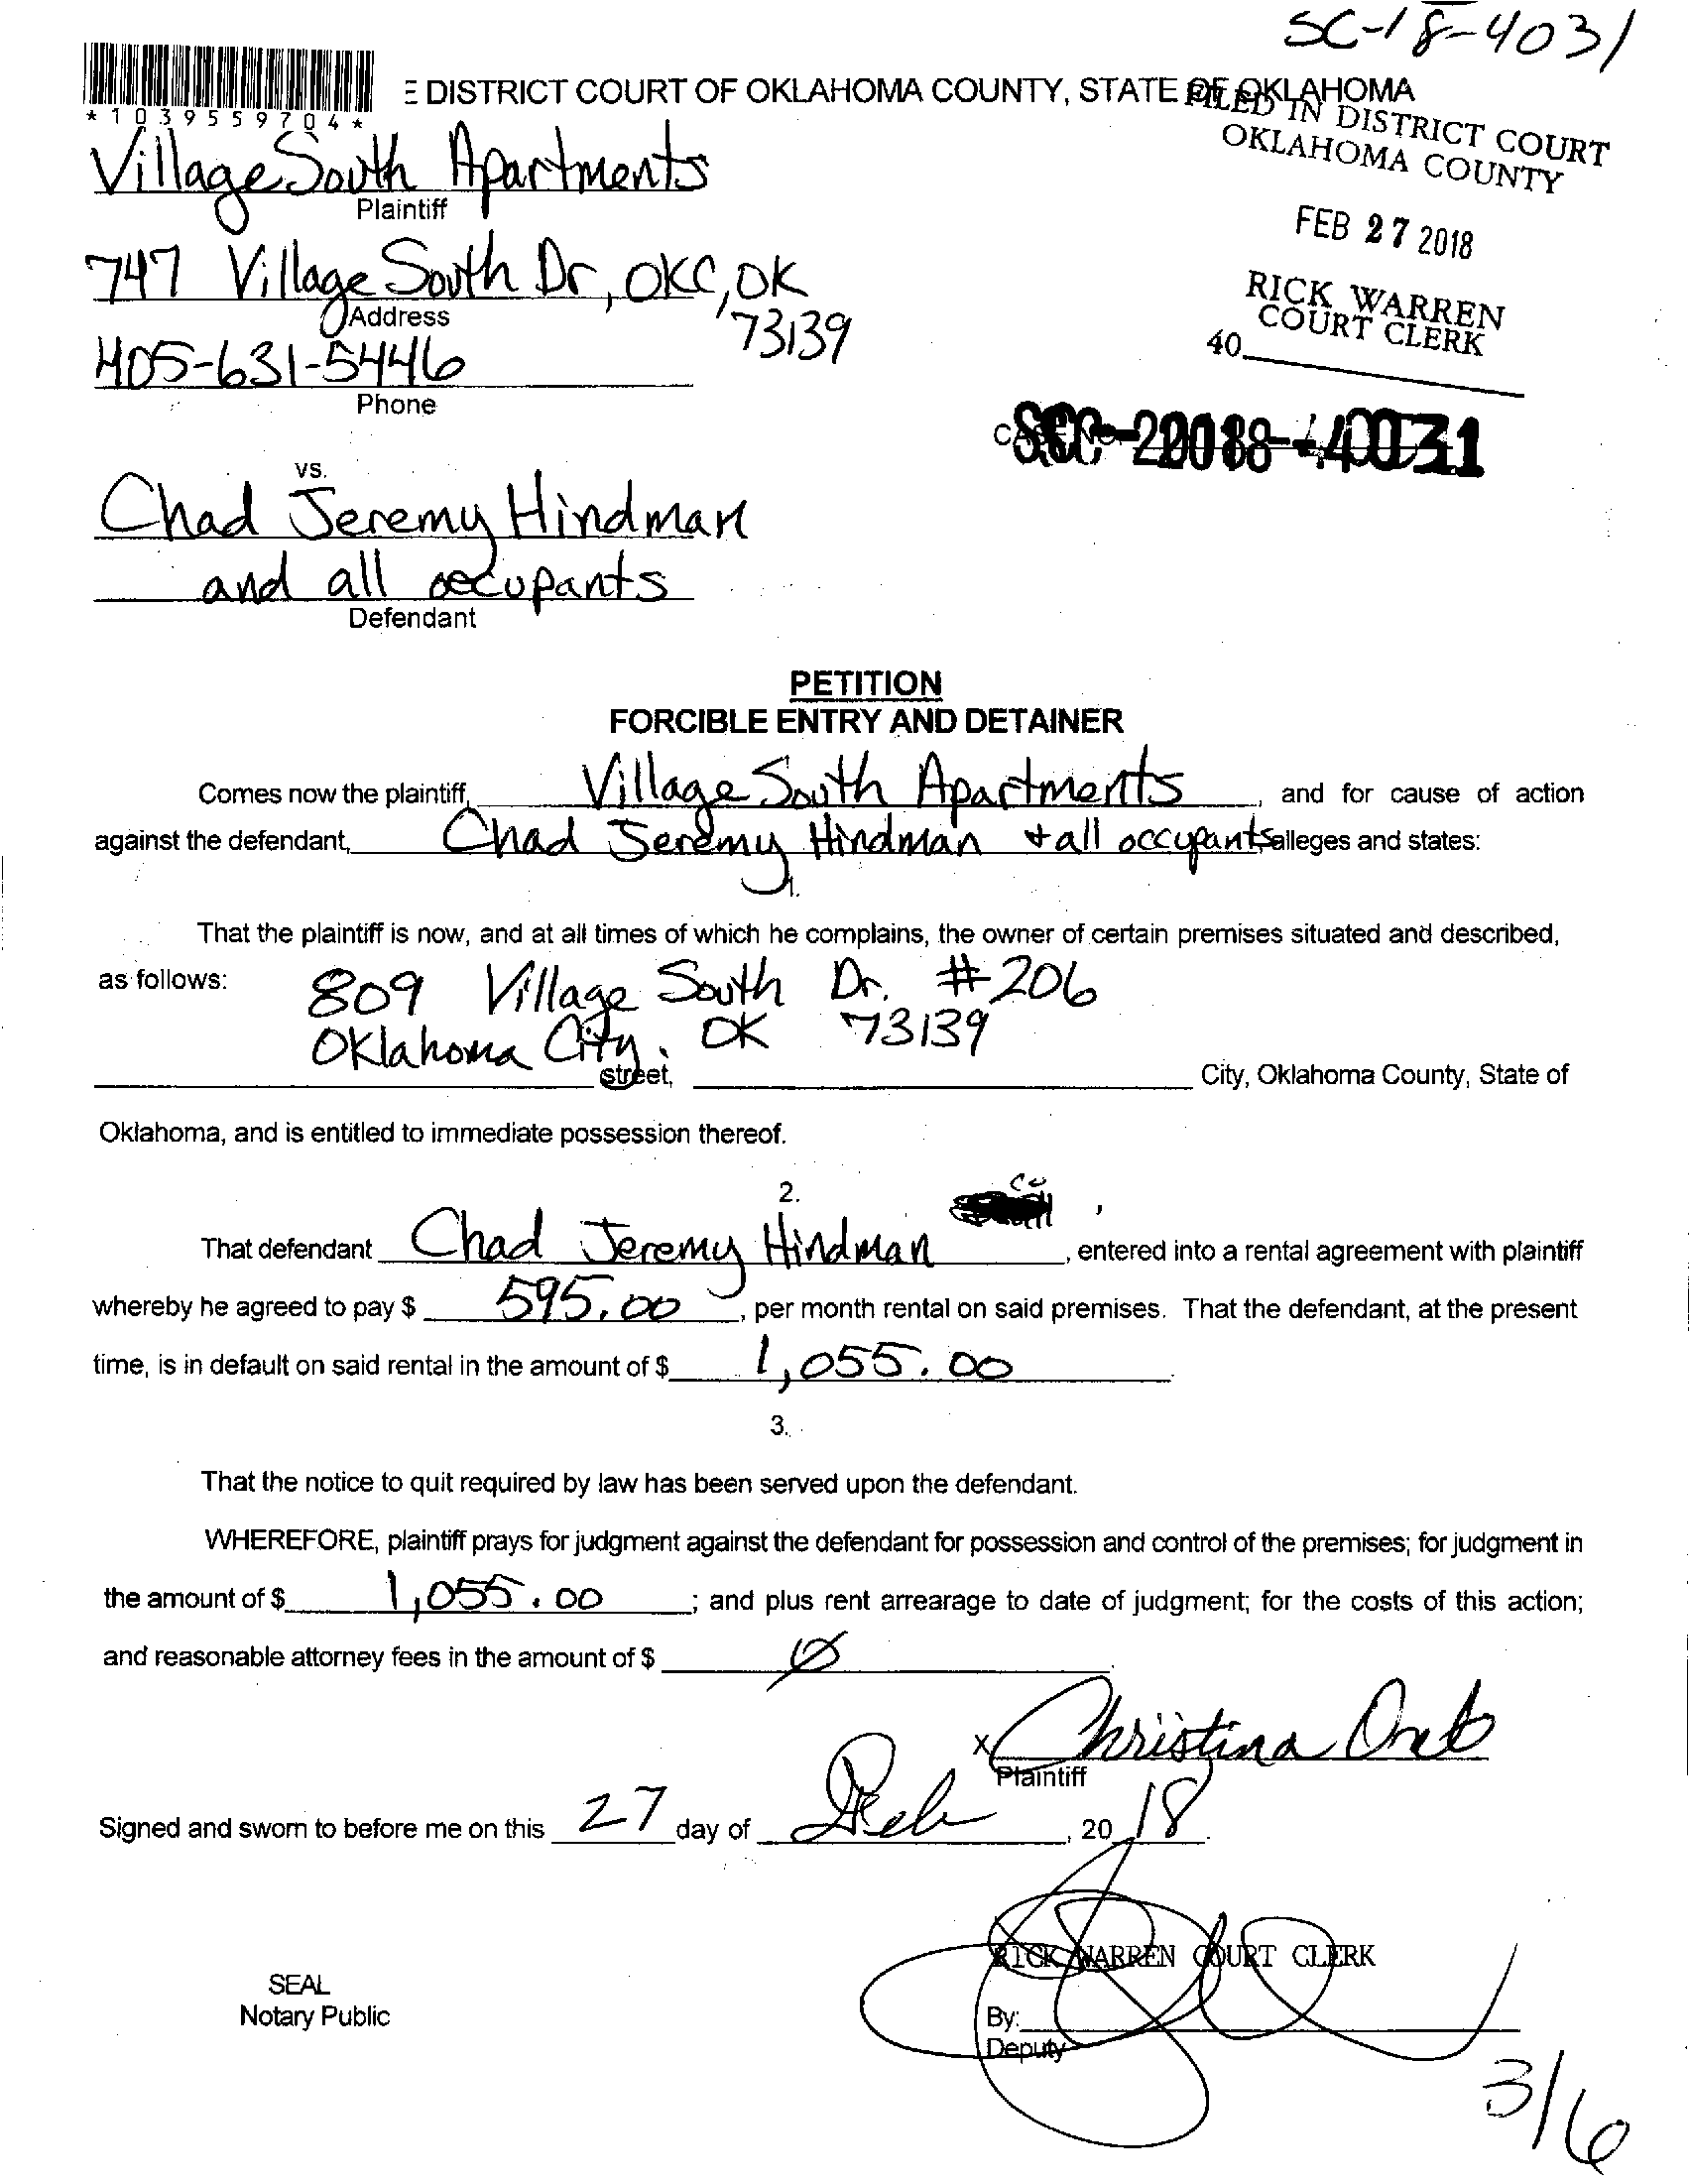 SC-18-4031
E DISTRICT COURT OF OKLAHOMA COUNTY, STATE OF OKLAHOMA
*1039559704*
FILED IN DISTRICT COURT
OKLAHOMA COUNTY
Village South Apartments
Plaintiff
FEB 27 2018
747 Village South Dr, OKC, OK
73139
Address
RICK WARREN
COURT CLERK
40
405-631-5446
Phone
SC-2018-4031
vs.
Chad Jeremy Hindman
and all occupants
Defendant
PETITION
FORCIBLE ENTRY AND DETAINER
Comes now the plaintiff, Village South Apartments, and for cause of action
against the defendant, Chad Jeremy Hindman + all occupants alleges and states:
1.
That the plaintiff is now, and at all times of which he complains, the owner of certain premises situated and described,
as follows: 809 Village South Dr. #206
Oklahoma City, OK 73139
street, City, Oklahoma County, State of
Oklahoma, and is entitled to immediate possession thereof.
2.
That defendant Chad Jeremy Hindman, entered into a rental agreement with plaintiff
whereby he agreed to pay $ 595.00, per month rental on said premises. That the defendant, at the present
time, is in default on said rental in the amount of $ 1,055.00.
3.
That the notice to quit required by law has been served upon the defendant.
WHEREFORE, plaintiff prays for judgment against the defendant for possession and control of the premises; for judgment in
the amount of $ 1,055.00; and plus rent arrearage to date of judgment; for the costs of this action;
and reasonable attorney fees in the amount of $ Ø.
X Christina
Plaintiff
Signed and sworn to before me on this 27 day of Feb, 20 18.
RICK WARREN COURT CLERK
SEAL
Notary Public
By:
Deputy
3/6